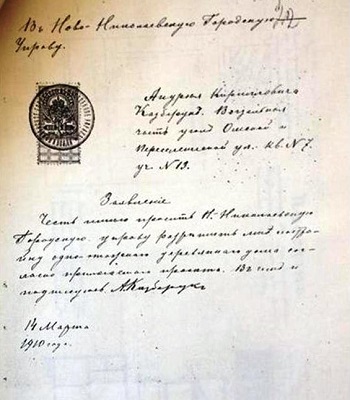 Въ Ново-Николаевскую Городскую
Управу.
Андрея Кириллович
Казберука. Вокзальная
часть угол Омской и
Переселенческой ул. кв. №7.
уч. №13.
Заявление
Честь имею просить Н.-Николаевскую
Городскую управу разрешить мне построй
ку одноэтажного деревяннаго дома сог-
ласно прилагаемаго проекта. Въ чемъ и
подписуюсь А. Казберукъ
14 Марта
1910 года.